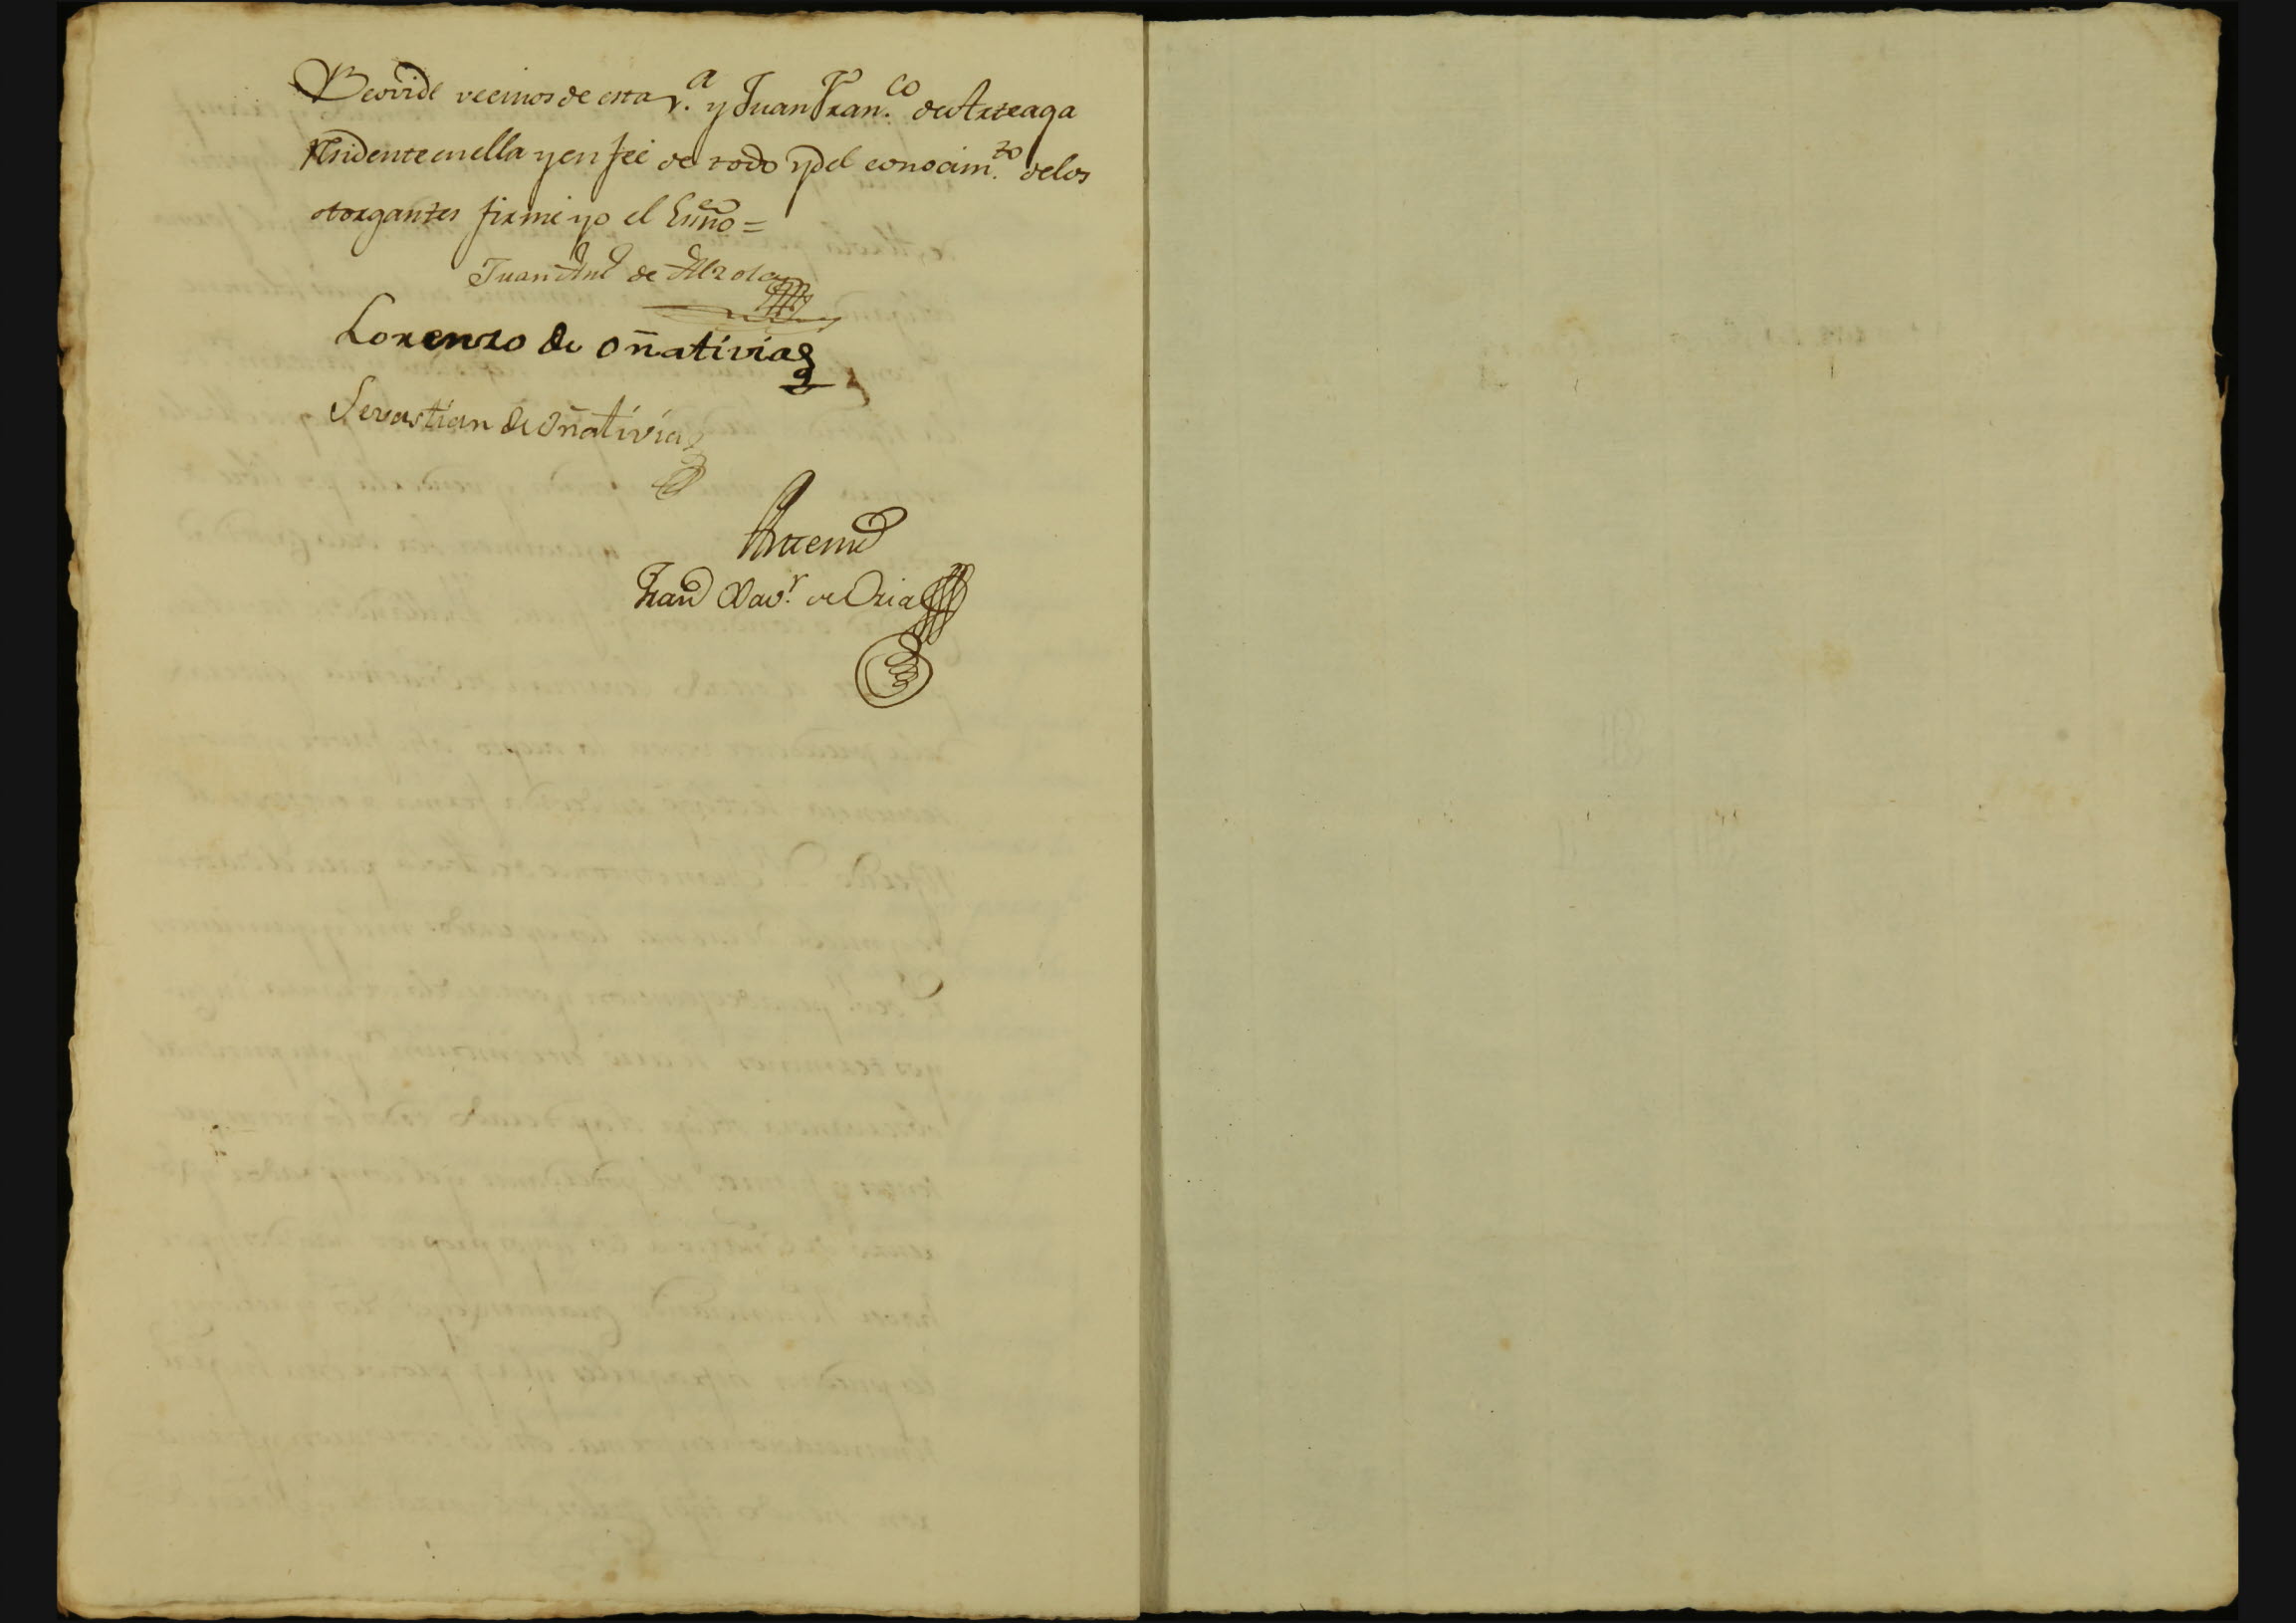 Beovide vecinos de esta v.ª y Juan Fran.co de Arteaga
Residente en ella y en fee de todo y del conocim.to de los
otorgantes firme yo el Essno =
Juan Ant de Alzola
Lorenzo de oñativia
Sevastian de oñativia
Antemi
Fran Xav.r de Oria